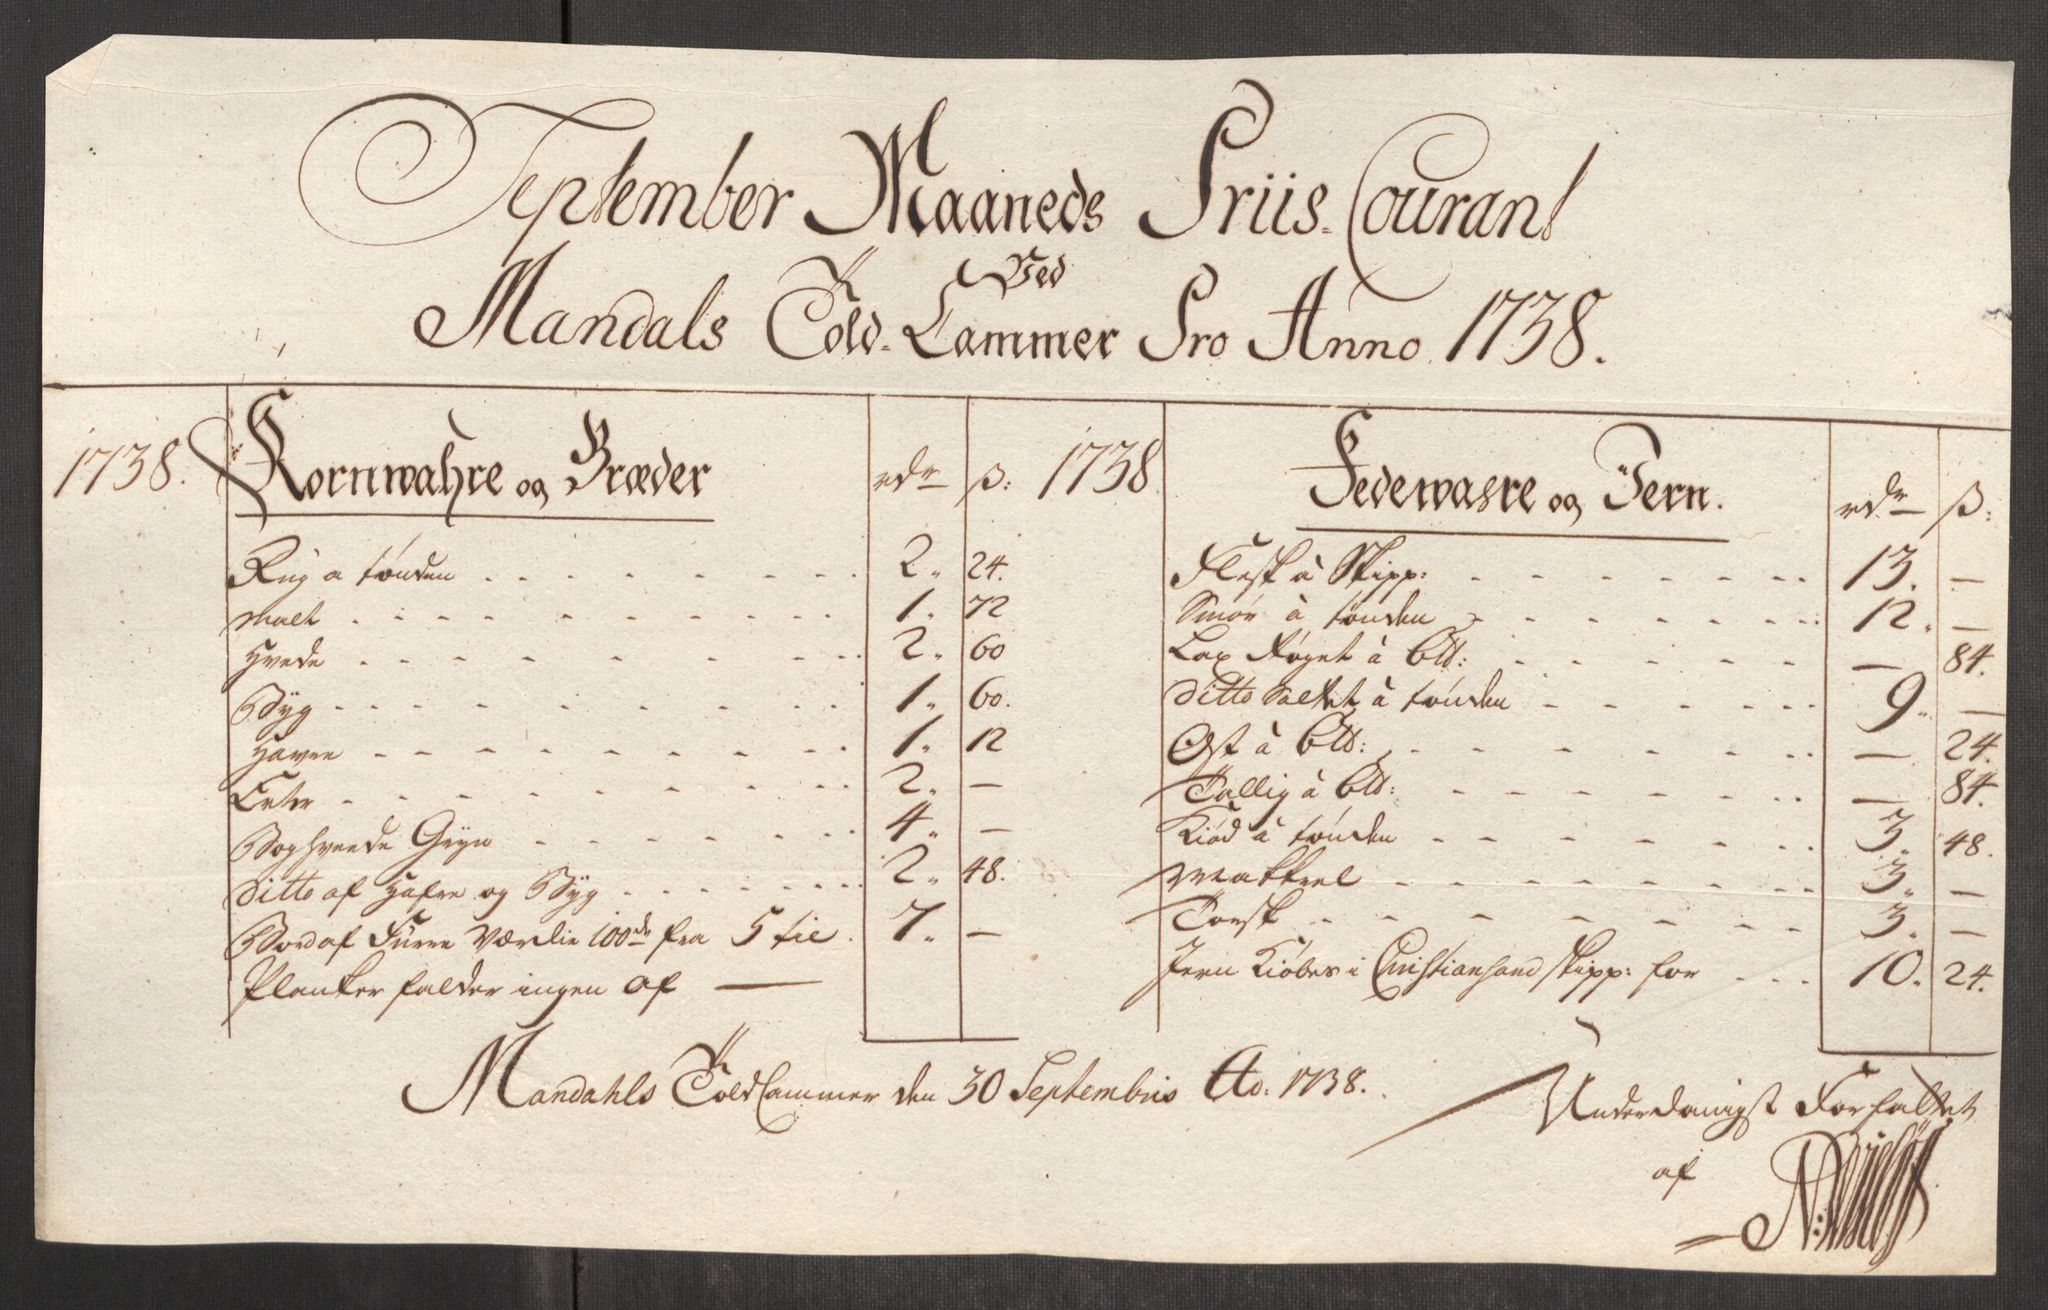 September Maaneds Priis-Courant
Ved
Mandals Told-Cammer Pro Anno 1738.
1738. Kornwahre og Bræder rdr ß:
Rug a tönden 2. 24.
Malt 1. 72
Hvede 2. 60
Byg 1. 60.
Havre 1. 12
Erter 2. —
Boghveede Gryn 4. —
Ditto af Hafre og Byg 2. 48.
Bord af Furre 100de fra 5 til 7. —
Planker falder ingen af —
1738 Fedewahre og Jern. rdr ß:
Flesk à Skipp: 13. —
Smör à tönden 12. —
Lax Röget à Bld: — 84.
Ditto Saltet à tönden 9. —
Ost à Bld: — 24.
Tallig à Bld: — 84.
Kiöd à tönden 3. 48.
Makkrel 3. —
Torsk 3. —
Jern Kiöbes i Christiansand skipp: for 10. 24.
Mandahls Told Cammer den 30 Septembris Ao: 1738.
Underdanigst Forfattet
af